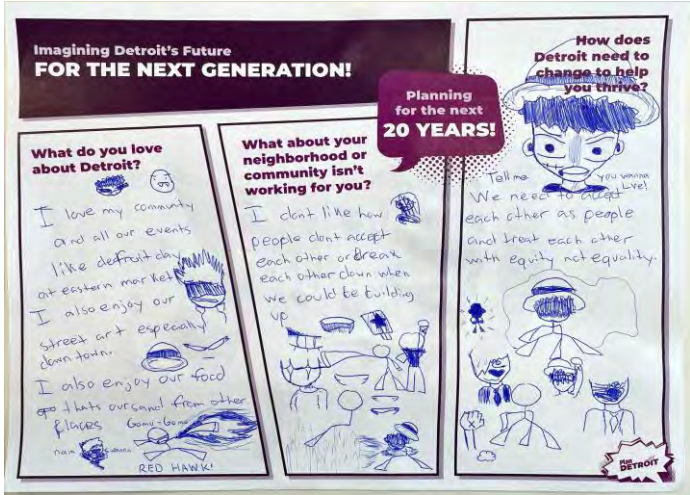 Imagining Detroit's Future
FOR THE NEXT GENERATION!
Planning
for the next
20 YEARS!
What do you love
about Detroit?
I love my community
and all our events
like detroit day
at eastern market
I also enjoy our
street art especially
down town.
I also enjoy our food
thats ours and from other
places
Gomu-Gomo
RED HAWK!
What about your
neighborhood or
community isn't
working for you?
I dont like how
people dont accept
each other or break
each other down when
we could be building
up
How does
Detroit need to
change to help
you thrive?
Tell me you wanna
Live!
We need to accept
each other as people
and treat each other
with equity not equality.
Plan
DETROIT